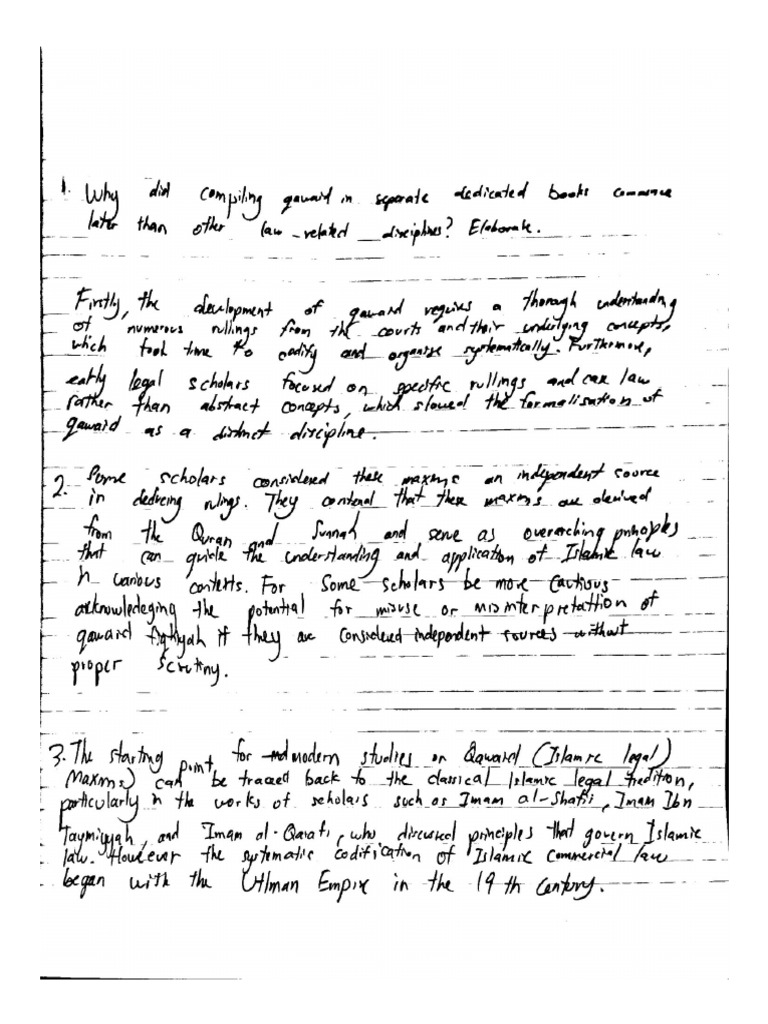 1. Why did compiling qawaid in separate dedicated books commence
later than other law-related disciplines? Elaborate.
Firstly, the development of qawaid requires a thorough understanding
of numerous rullings from the courts and their underlying concepts,
which took time to codify and organise systematically. Furthermore,
early legal scholars focused on specific rullings and case law
rather than abstract concepts, which slowed the formalisation of
qawaid as a distinct discipline.
2. Some scholars considered these maxims an independent source
in deducing rulings. They contend that these maxims are derived
from the Quran and Sunnah and serve as overarching principles
that can guide the understanding and application of Islamic law
in various contexts. For some scholars be more cautious
acknowledeging the potential for misuse or misinterpretattion of
qawaid fiqhiyah if they are considered independent sources without
proper scrutiny.
3. The starting point for modern studies on Qawaid (Islamic legal)
Maxms) can be traced back to the classical Islamic legal tredition,
particularly in the works of scholars such as Imam al-Shafi'i, Imam Ibn
Taymiyyah, and Imam al-Qarafi, who discussed principles that govern Islamic
law. However the systematic codification of Islamic commercial law
began with the Utlman Empire in the 19th century.